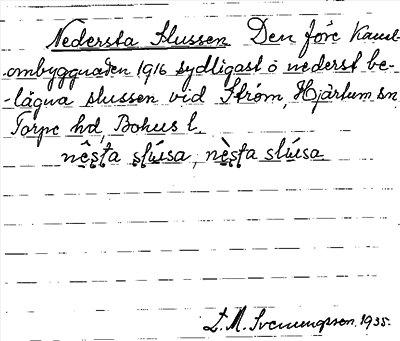 Nedersta Slussen Den före Kanal-
ombyggnaden 1916 sydligast o nederst be-
-lägna slussen vid Ström, Hjärtum sn,
Torpe hd, Bohus l.
nêsta slúisa, nèsta slúisa
L. M. Svenungsson. 1935.